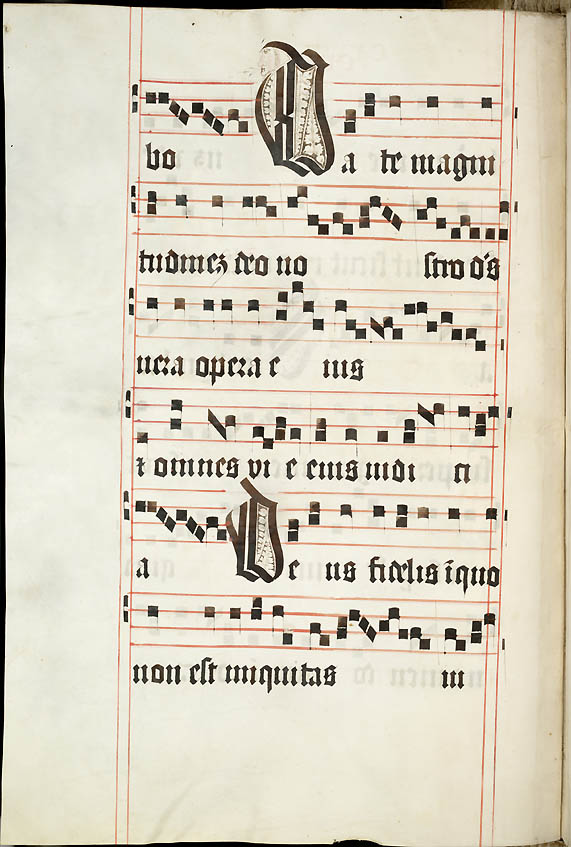 bo Da te magni
tudinez deo no stro d̄s
uera opera e ius
⁊ omnes vi e eius iudi ci
a De us fidelis īquo
non est iniquitas in